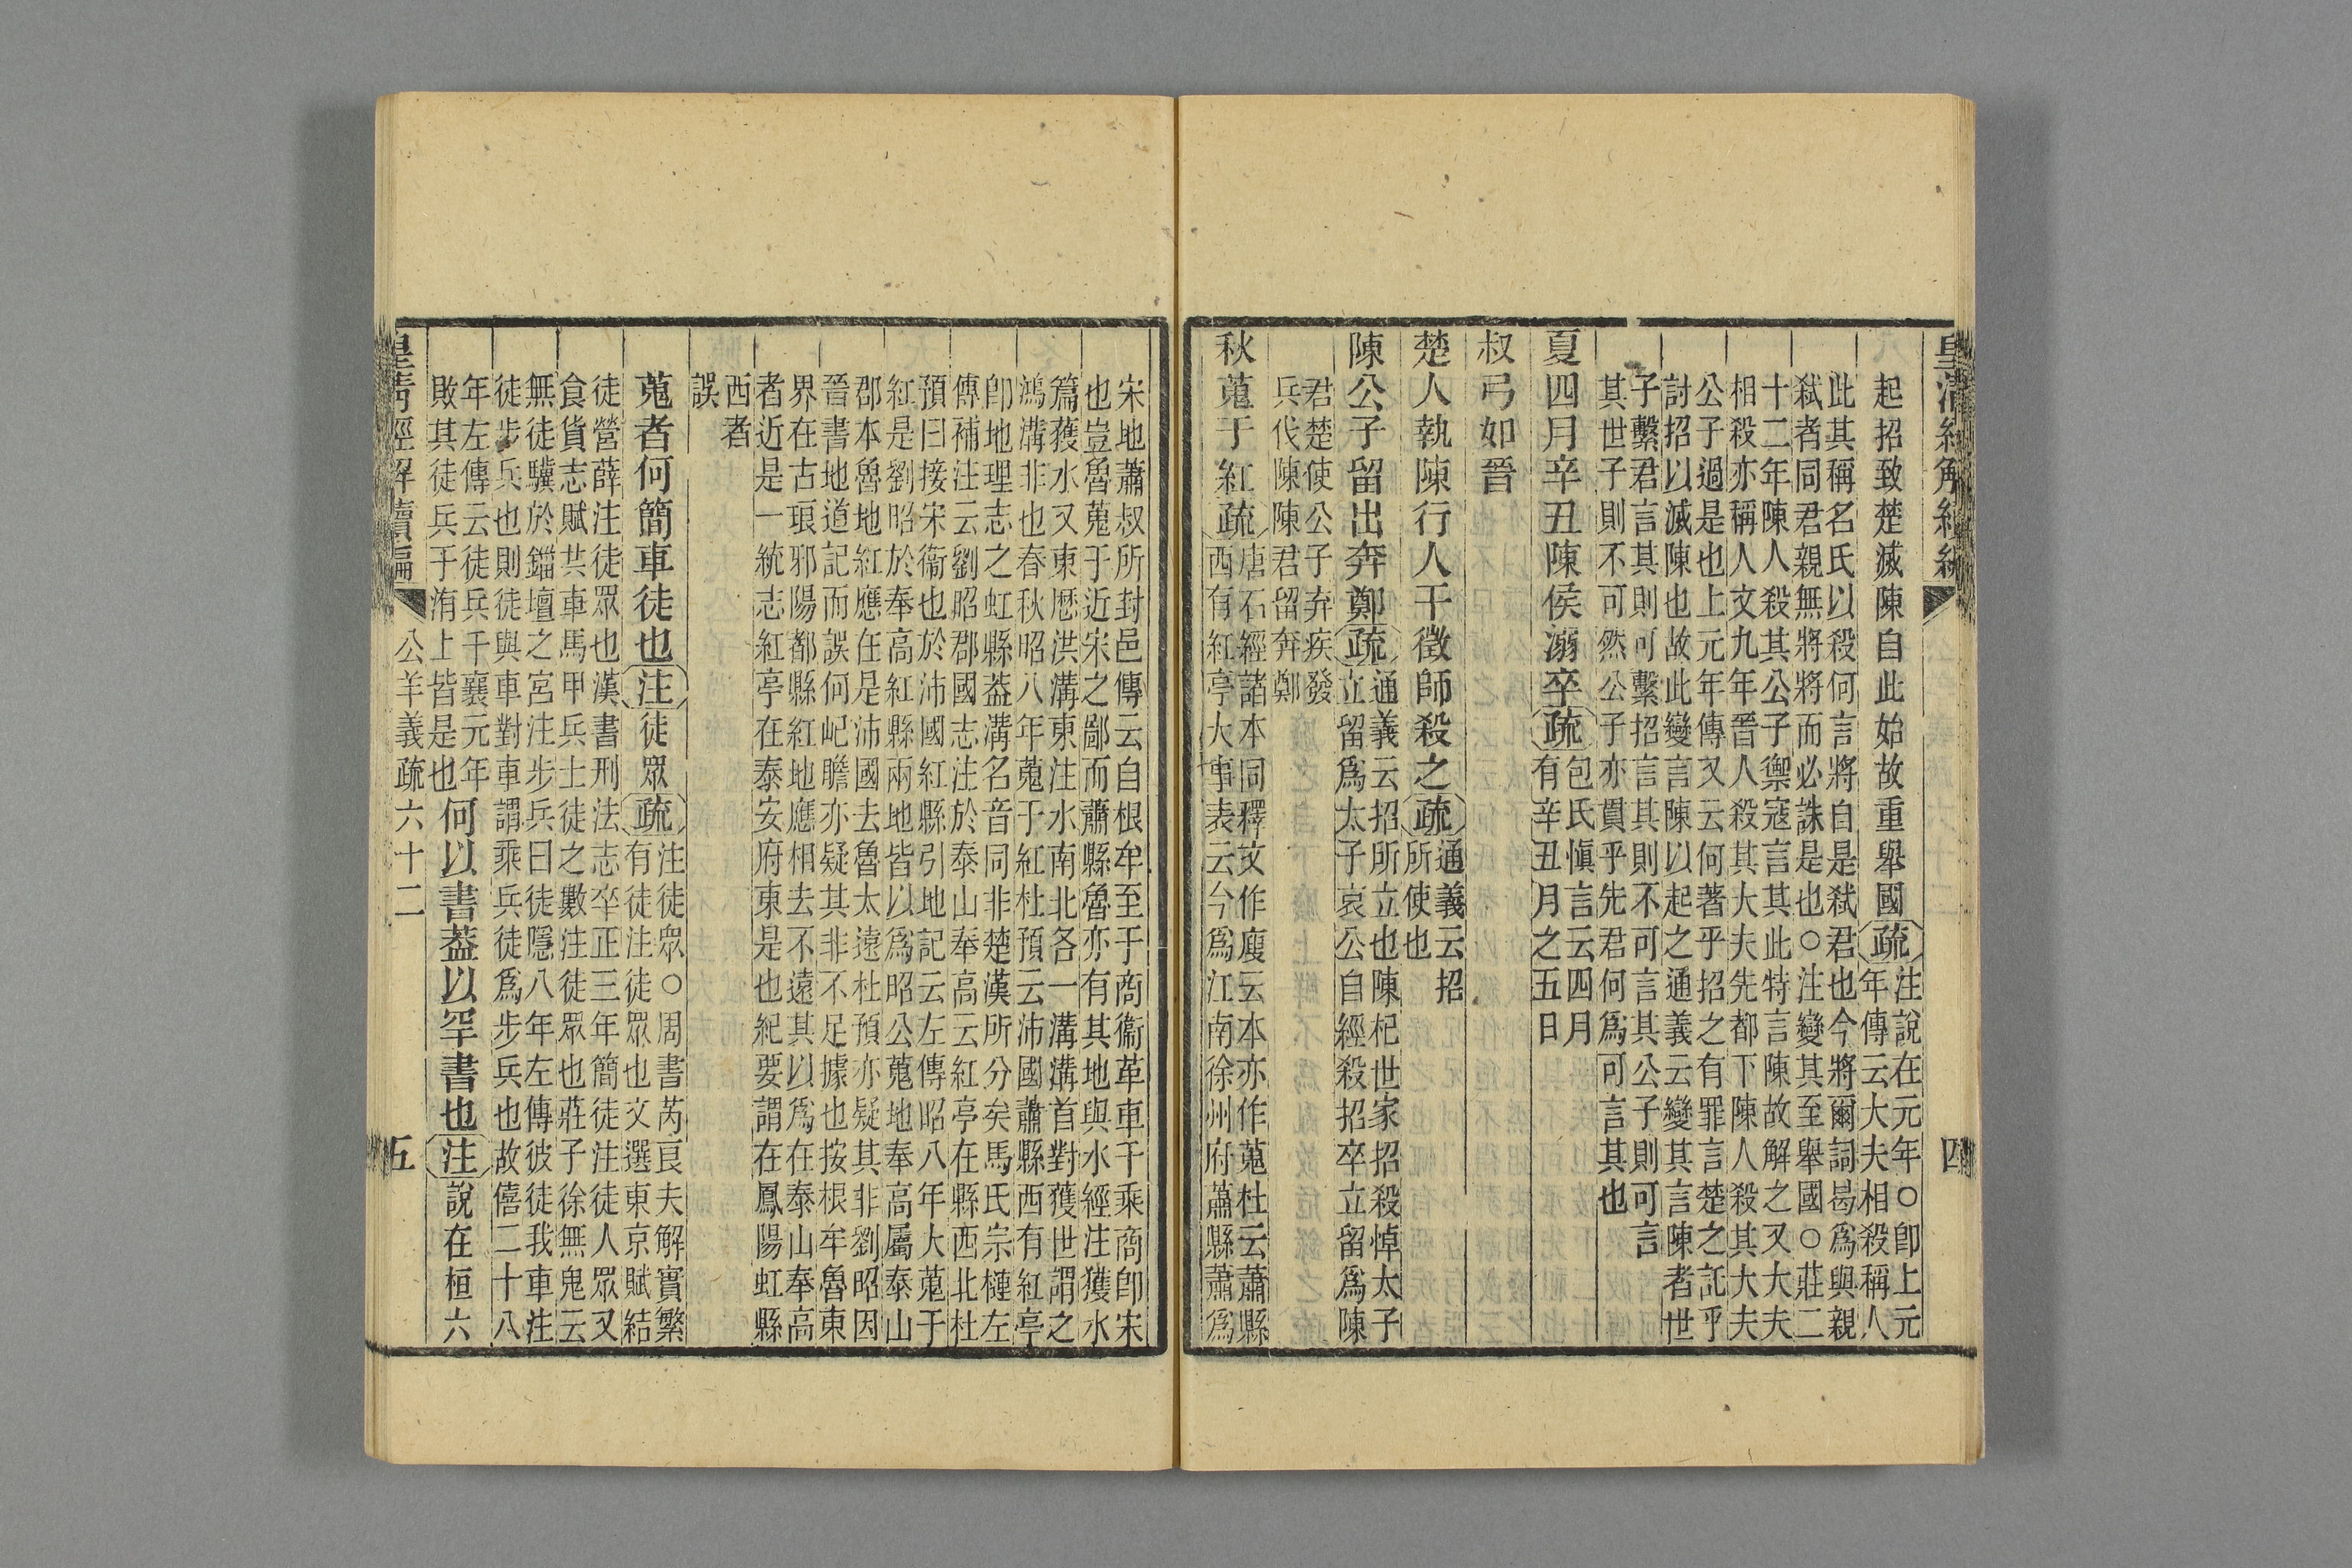 皇清經解續編
四
起招致楚滅陳自此始故重舉國疏注說在元年○卽上元
年傳云大夫相殺稱人
此其稱名氏以殺何言將自是弒君也今將爾詞曷爲與親
弒者同君親無將將而必誅是也○注變其至舉國○莊二
十二年陳人殺其公子禦寇言其此特言陳故解之又大夫
相殺亦稱人文九年晉人殺其大夫先都下陳人殺其大夫
公子過是也上元年傳又云何著乎招之有罪言楚之託乎
討招以滅陳也故此變言陳以起之通義云變其言陳者世
子繫君言其則可繫招言其則不可言其公子則可言
其世子則不可然公子亦貫乎先君何爲可言其也
夏四月辛丑陳侯溺卒疏包氏愼言云四月
有辛丑月之五日
叔弓如晉
楚人執陳行人干徵師殺之疏通義云招
所使也
陳公子留出奔鄭疏通義云招所立也陳杞世家招殺悼太子
立留爲太子哀公自經殺招卒立留爲陳
君楚使公子弃疾發
兵伐陳陳君留奔鄭
秋蒐于紅疏唐石經諸本同釋文作廋云本亦作蒐杜云蕭縣
西有紅亭大事表云今爲江南徐州府蕭縣蕭爲
宋地蕭叔所封邑傳云自根牟至于商衞革車千乘商卽宋
也豈魯蒐于近宋之鄙而蕭縣魯亦有其地與水經注獲水
篇獲水又東歷洪溝東注水南北各一溝溝首對獲世謂之
鴻溝非也春秋昭八年蒐于紅杜預云沛國蕭縣西有紅亭
卽地理志之虹縣葢溝名音同非楚漢所分矣馬氏宗槤左
傳補注云劉昭郡國志注於泰山奉高云紅亭在縣西北杜
預曰接宋衞也於沛國紅縣引地記云左傳昭八年大蒐于
紅是劉昭於奉高紅縣兩地皆以爲昭公蒐地奉高屬泰山
郡本魯地紅應在是沛國去魯太遠杜預亦疑其非劉昭因
晉書地道記而誤何屺瞻亦疑其非不足據也按根牟魯東
界在古琅邪陽都縣紅地應相去不遠其以爲在泰山奉高
者近是一統志紅亭在泰安府東是也紀要謂在鳳陽虹縣
西者
誤
蒐者何簡車徒也注徒眾疏注徒眾○周書芮良夫解實繁
有徒注徒眾也文選東京賦結
徒營薛注徒眾也漢書刑法志卒正三年簡徒注徒人眾又
食貨志賦共車馬甲兵士徒之數注徒眾也莊子徐無鬼云
無徒驥於錙壇之宮注步兵曰徒隱八年左傳彼徒我車注
徒步兵也則徒與車對車謂乘兵徒爲步兵也故僖二十八
年左傳云徒兵千襄元年
敗其徒兵于洧上皆是也何以書葢以罕書也注說在桓六
皇清經解續編
公羊義疏六十二
五